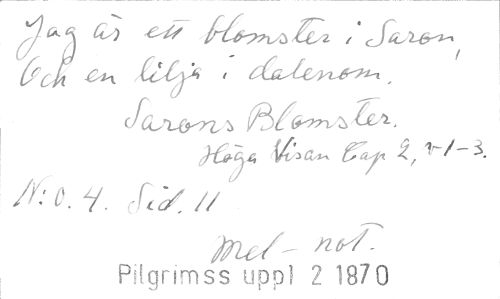 Jag är ett blomster i Saron,
Och en lilja i dalenom.
Sarons Blomster.
Höga Visan Cap 2, v-1-3.
N:o. 4. Sid. 11
Mel - not.
Pilgrimss uppl 2 1870